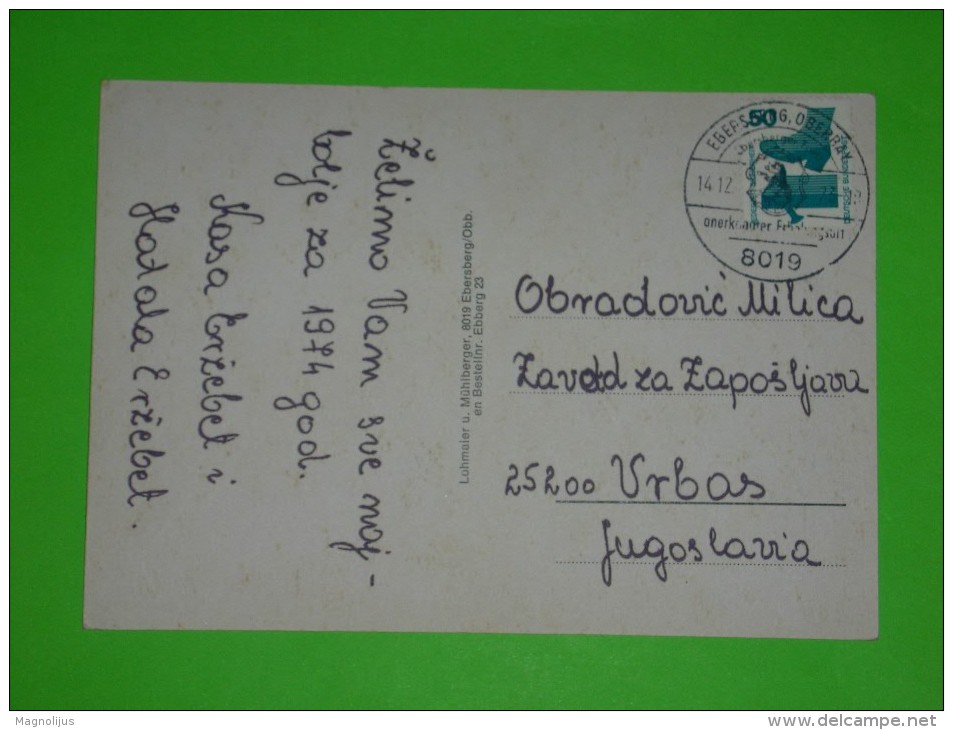 Želimo Vam sve naj-
bolje za 1974 god.
Kasa Eržebet i
Hadala Eržebet.
Lohmaier u. Mühlberger, 8019 Ebersberg/Obb.
en Bestellnr. Ebberg 23
50
EBERSBERG, OBERBAY
14.12.
anerkannter Erholungsort
8019
Obradović Milica
Zavod za Zapošljava
25200 Vrbas
Jugoslavia
Magnolijus
delcampe.net